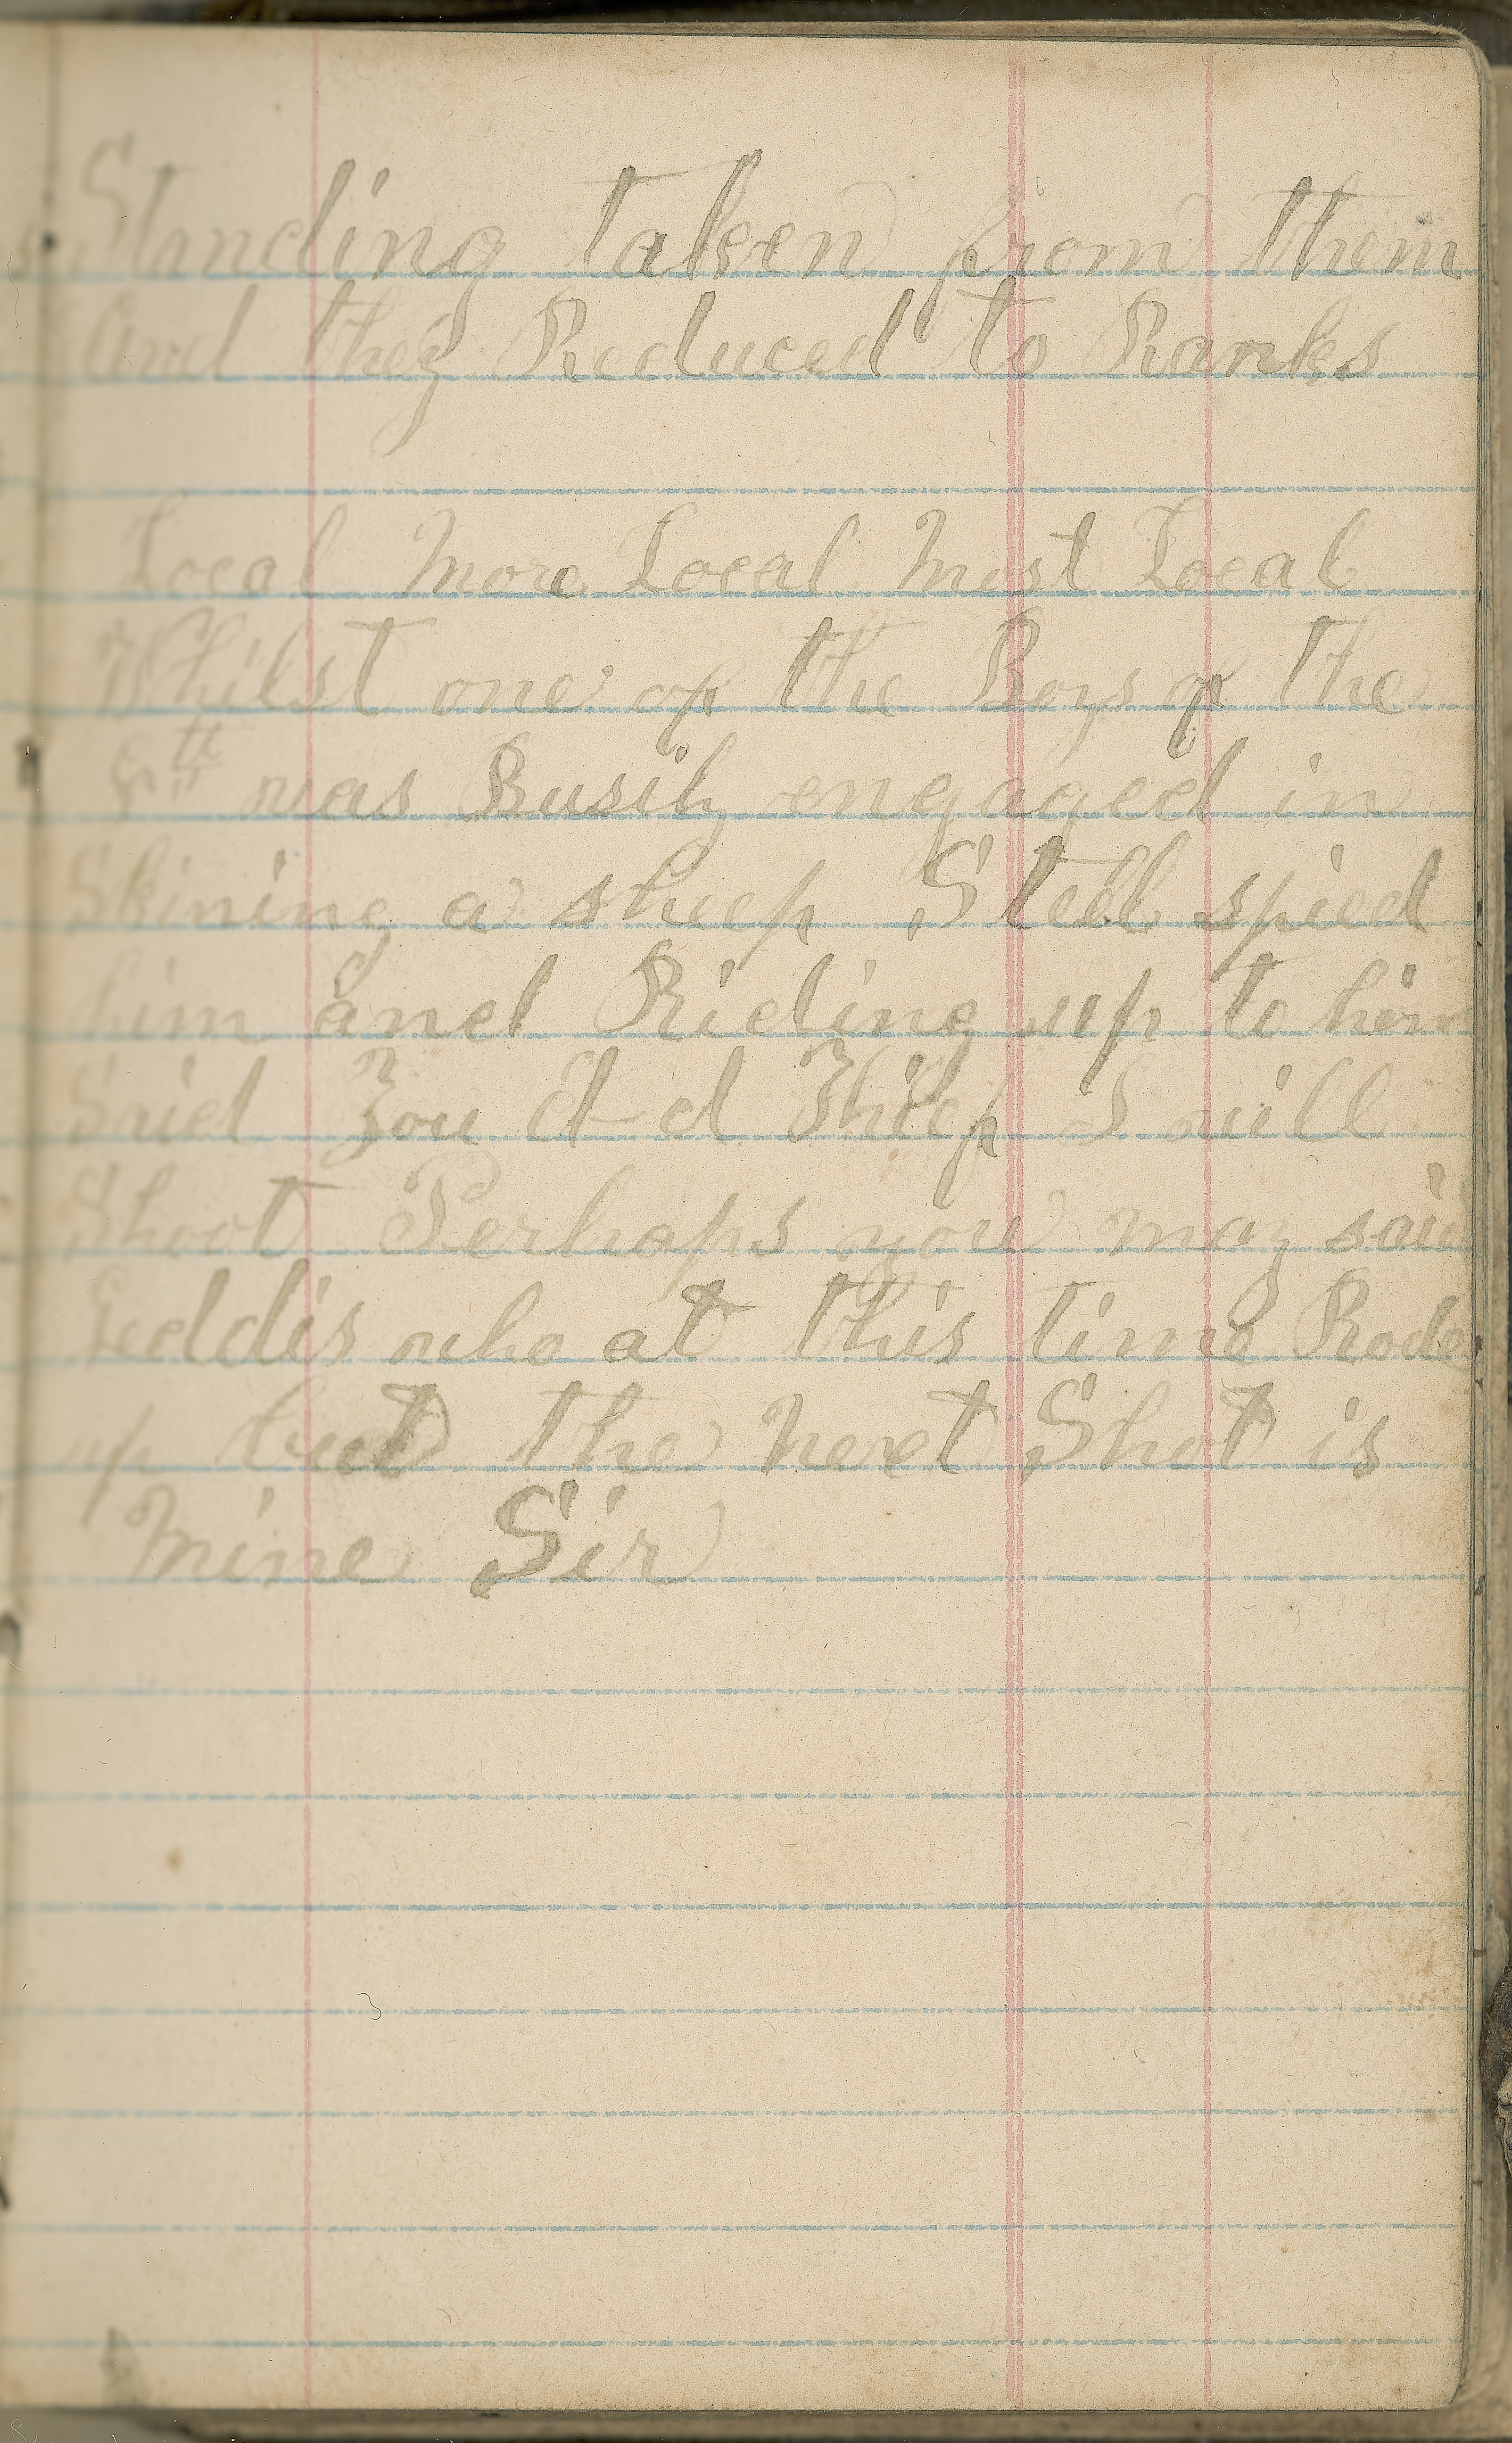 Standing taken from them
And they Reduced to Ranks
Local More Local Most Local
Whilst one of the Boys of the
8th was Busily engaged in
Skining a sheep Stell spied
him and Rideing up to him
Said You d-d Thief I will
Shoot Perhaps you may said
Geddis who at this time Rode
up but the next Shot is
Mine Sir